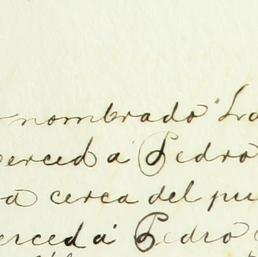 nombrado
merced á Pedro
cerca del
merced á Pedro